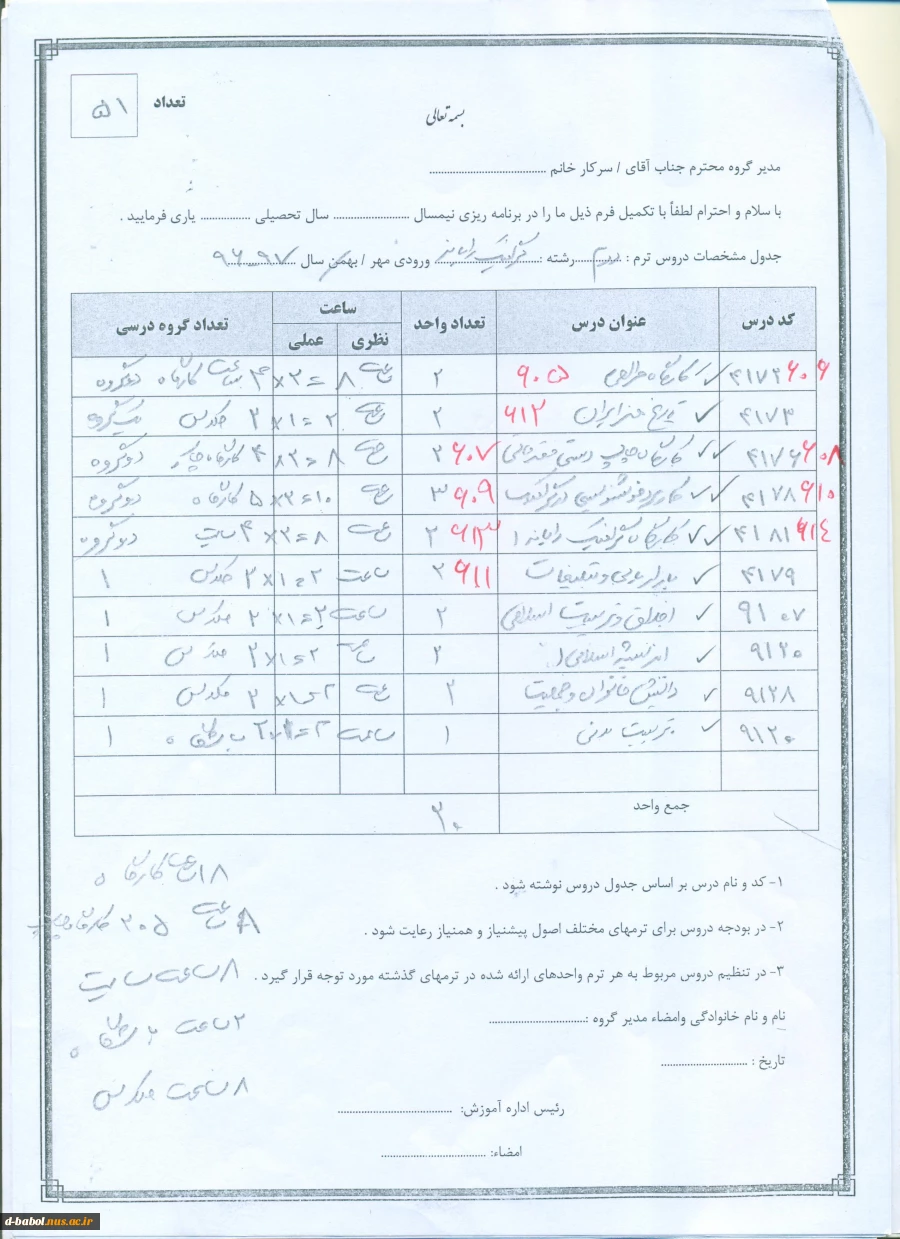 بسمه تعالی
تعداد ۵۱
مدیر گروه محترم جناب آقای / سرکار خانم ........................................
با سلام و احترام لطفاً با تکمیل فرم ذیل ما را در برنامه ریزی نیمسال .......................... سال تحصیلی ................. یاری فرمایید .
جدول مشخصات دروس ترم : دوم رشته : گرافیک رایانه ورودی مهر / بهمن سال ۹۶-۹۷
کد درس عنوان درس تعداد واحد ساعت تعداد گروه درسی
نظری عملی
۶۰۶ ۴۱۷۲ کارگاه طراحی ۶۰۵ ۲ ساعت ۸ = ۲×۴ ساعت کارگاه دوگروه
۴۱۷۳ تاریخ هنر ایران ۶۱۲ ۲ ساعت ۲ = ۱×۲ کلاس یک گروه
۶۰۸ ۴۱۷۶ کارگاه چاپ دستی مقدماتی ۶۰۷ ۲ ساعت ۸ = ۲×۴ کارگاه چاپ دوگروه
۶۱۰ ۴۱۷۸ کاربرد خوشنویسی در گرافیک ۶۰۹ ۳ ساعت ۱۰ = ۲×۵ کارگاه دوگروه
۶۱۴ ۴۱۸۱ کارگاه گرافیک رایانه ۱ ۶۱۳ ۲ ساعت ۸ = ۲×۴ سایت دوگروه
۴۱۷۹ و تبلیغات ۶۱۱ ۲ ساعت ۲ = ۱×۲ کلاس ۱
۹۱۰۷ اخلاق و تربیت اسلامی ۲ ساعت ۲ = ۱×۲ کلاس ۱
۹۱۲۰ اندیشه اسلامی ۱ ۲ ساعت ۲ = ۱×۲ کلاس ۱
۹۱۲۸ دانش خانواده و جمعیت ۲ ساعت ۲ = ۱×۲ کلاس ۱
۹۱۲۰ تربیت بدنی ۱ ساعت ۲ = ۱×۲ باشگاه ۱
جمع واحد ۲۰
۱- کد و نام درس بر اساس جدول دروس نوشته شود .
۲- در بودجه دروس برای ترمهای مختلف اصول پیشنیاز و همنیاز رعایت شود .
۳- در تنظیم دروس مربوط به هر ترم واحدهای ارائه شده در ترمهای گذشته مورد توجه قرار گیرد .
نام و نام خانوادگی وامضاء مدیر گروه :.................................
تاریخ : .............................
رئیس اداره آموزش: .......................................
امضاء: ....................................
۱۸ ساعت کارگاه
۸ ساعت ۳۰۵ کارگاه چاپ
۸ ساعت سایت
۲ ساعت باشگاه
۸ ساعت کلاس
d-babol.nus.ac.ir